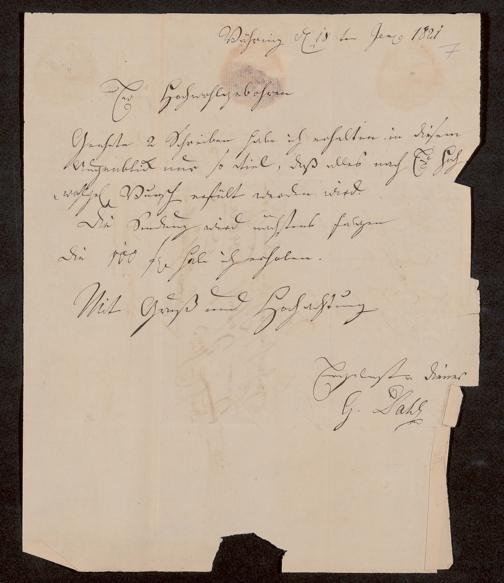 d 18 ten Jen 1821
7
Ew Hochwohlgebohren
Geehrte 2 Schreiben habe ich erhalten in diesem
Augenblick nur so viel, daß alles nach Ew Hoch
Wunsch erfült werden wird.
Die Sendung wird nächstens folgen
die 100 f habe ich erhoben.
Mit Gruß und Hochachtung
Ergebenster diener
G. Dahl